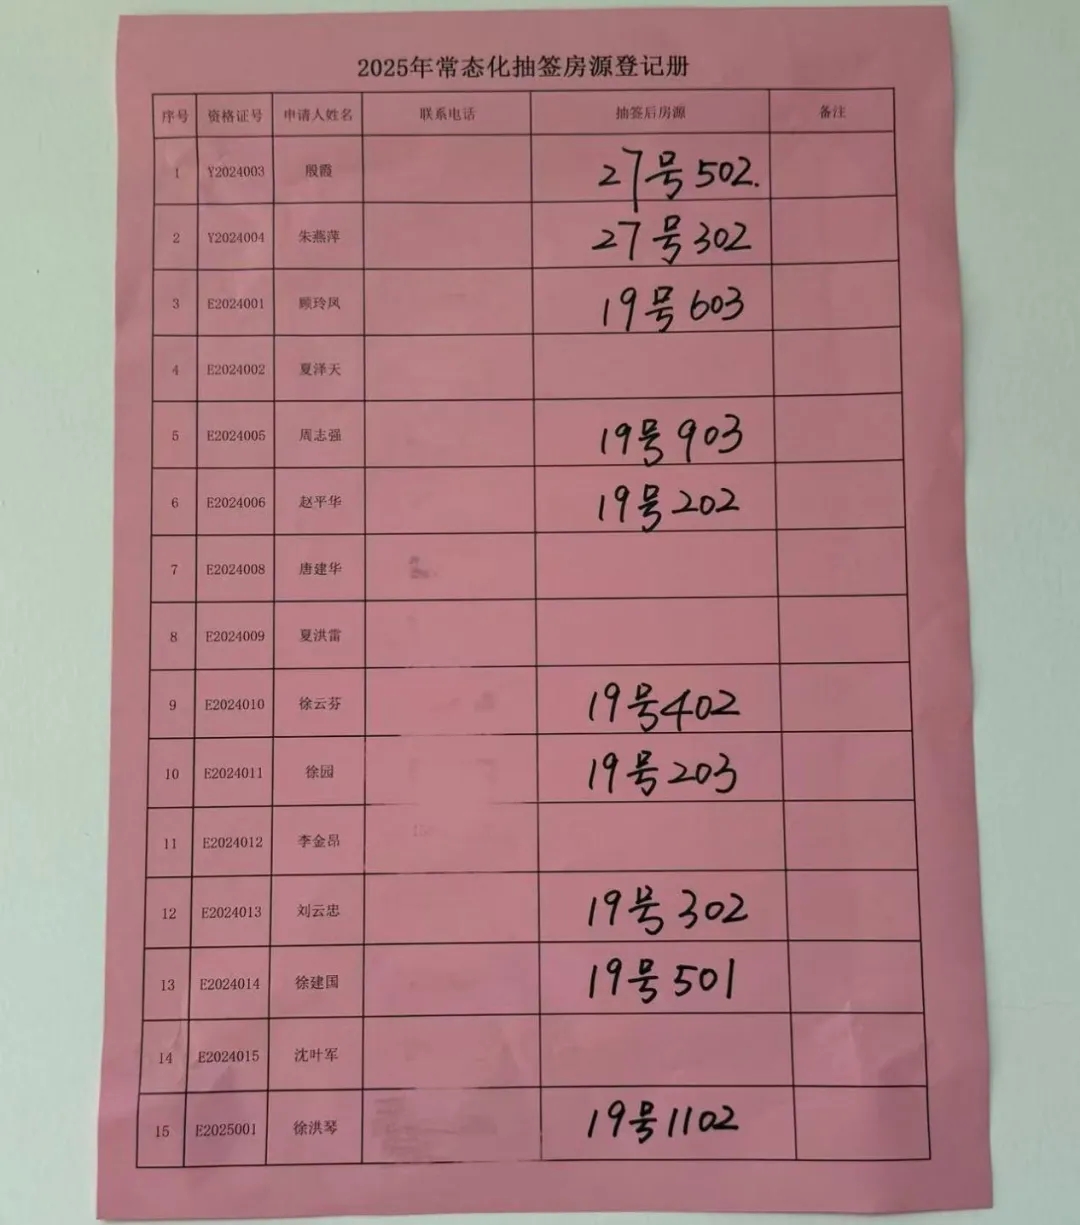 2025年常态化抽签房源登记册
序号 资格证号 申请人姓名 联系电话 抽签后房源 备注
1 Y2024003 殷霞 27号502.
2 Y2024004 朱燕萍 27号302
3 E2024001 顾玲凤 19号603
4 E2024002 夏泽天
5 E2024005 周志强 19号903
6 E2024006 赵平华 19号202
7 E2024008 唐建华
8 E2024009 夏洪雷
9 E2024010 徐云芬 19号402
10 E2024011 徐园 19号203
11 E2024012 李金昂
12 E2024013 刘云忠 19号302
13 E2024014 徐建国 19号501
14 E2024015 沈叶军
15 E2025001 徐洪琴 19号1102